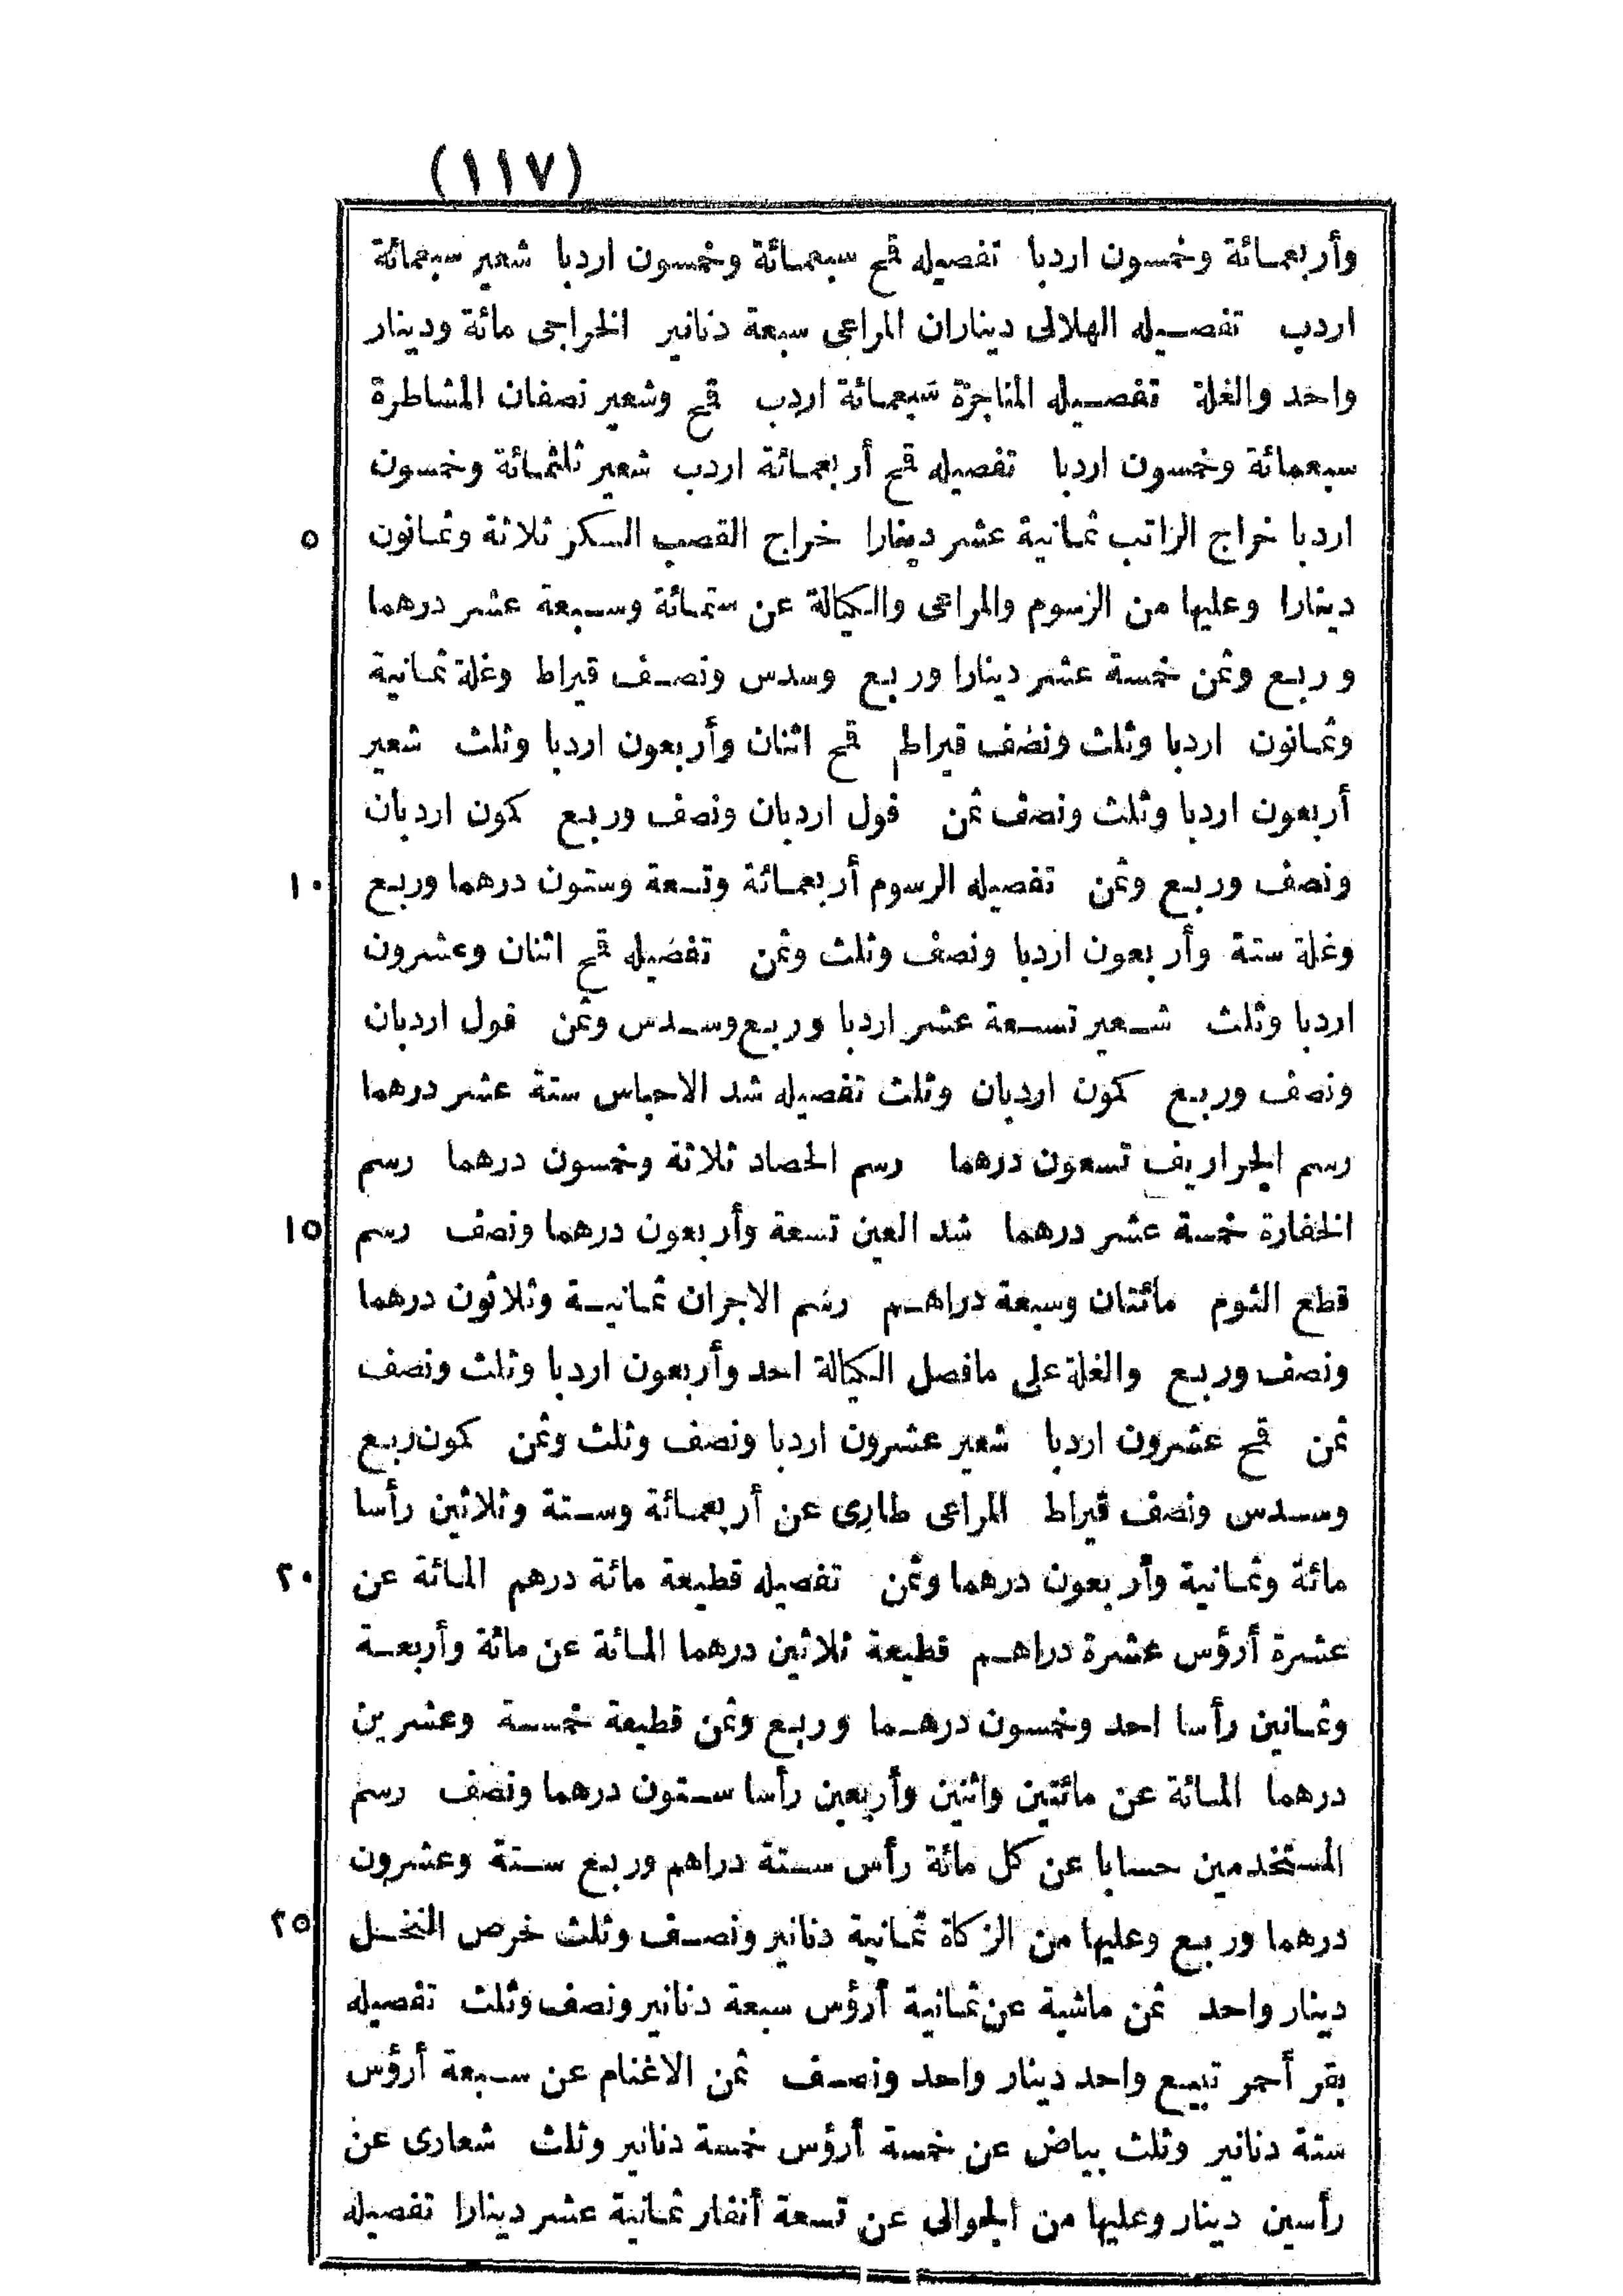 (١١٧)
وأربعمائة وخمسون اردبا تفصيله قمح سبعمائة وخمسون اردبا شعير سبعمائة
اردب تفصيله الهلالى ديناران المراعى سبعة دنانير الخراجى مائة ودينار
واحد والغلة تفصيله المناجزة سبعمائة اردب قمح وشعير نصفان المشاطرة
سبعمائة وخمسون اردبا تفصيله قمح أربعمائة اردب شعير ثلثمائة وخمسون
اردبا خراج الراتب ثمانية عشر دينارا خراج القصب السكر ثلاثة وثمانون ٥
دينارا وعليها من الرسوم والمراعى والكيالة عن ستمائة وسبعة عشر درهما
وربع وثمن خمسة عشر دينارا وربع وسدس ونصف قيراط وغلة ثمانية
وثمانون اردبا وثلث ونصف قيراط قمح اثنان وأربعون اردبا وثلث شعير
أربعون اردبا وثلث ونصف ثمن فول اردبان ونصف وربع كمون اردبان
ونصف وربع وثمن تفصيله الرسوم أربعمائة وتسعة وستون درهما وربع ١٠
وغلة ستة وأربعون اردبا ونصف وثلث وثمن تفصيله قمح اثنان وعشرون
اردبا وثلث شعير تسعة عشر اردبا وربع وسدس وثمن فول اردبان
ونصف وربع كمون اردبان وثلث تفصيله شد الاحباس ستة عشر درهما
رسم الجراريف تسعون درهما رسم الحصاد ثلاثة وخمسون درهما رسم
الخفارة خمسة عشر درهما شد العين تسعة وأربعون درهما ونصف رسم ١٥
قطع الثوم مائتان وسبعة دراهم رسم الاجران ثمانية وثلاثون درهما
ونصف وربع والغلة على مافصل الكيالة احد وأربعون اردبا وثلث ونصف
ثمن قمح عشرون اردبا شعير عشرون اردبا ونصف وثلث وثمن كمون ربع
وسدس ونصف قيراط المراعى طارى عن أربعمائة وستة وثلاثين رأسا
مائة وثمانية وأربعون درهما وثمن تفصيله قطيعة مائة درهم المائة عن ٢٠
عشرة أرؤس عشرة دراهم قطيعة ثلاثين درهما المائة عن مائة وأربعة
وثمانين رأسا احد وخمسون درهما وربع وثمن قطيعة خمسة وعشرين
درهما المائة عن مائتين واثنين وأربعين رأسا ستون درهما ونصف رسم
المستخدمين حسابا عن كل مائة رأس ستة دراهم وربع ستة وعشرون
درهما وربع وعليها من الزكاة ثمانية دنانير ونصف وثلث خرص النخل ٢٥
دينار واحد ثمن ماشية عن ثمانية أرؤس سبعة دنانير ونصف وثلث تفصيله
بقر أحمر تبيع واحد دينار واحد ونصف ثمن الاغنام عن سبعة أرؤس
ستة دنانير وثلث بياض عن خمسة أرؤس خمسة دنانير وثلث شعارى عن
رأسين دينار وعليها من الجوالى عن تسعة أنفار ثمانية عشر دينارا تفصيله